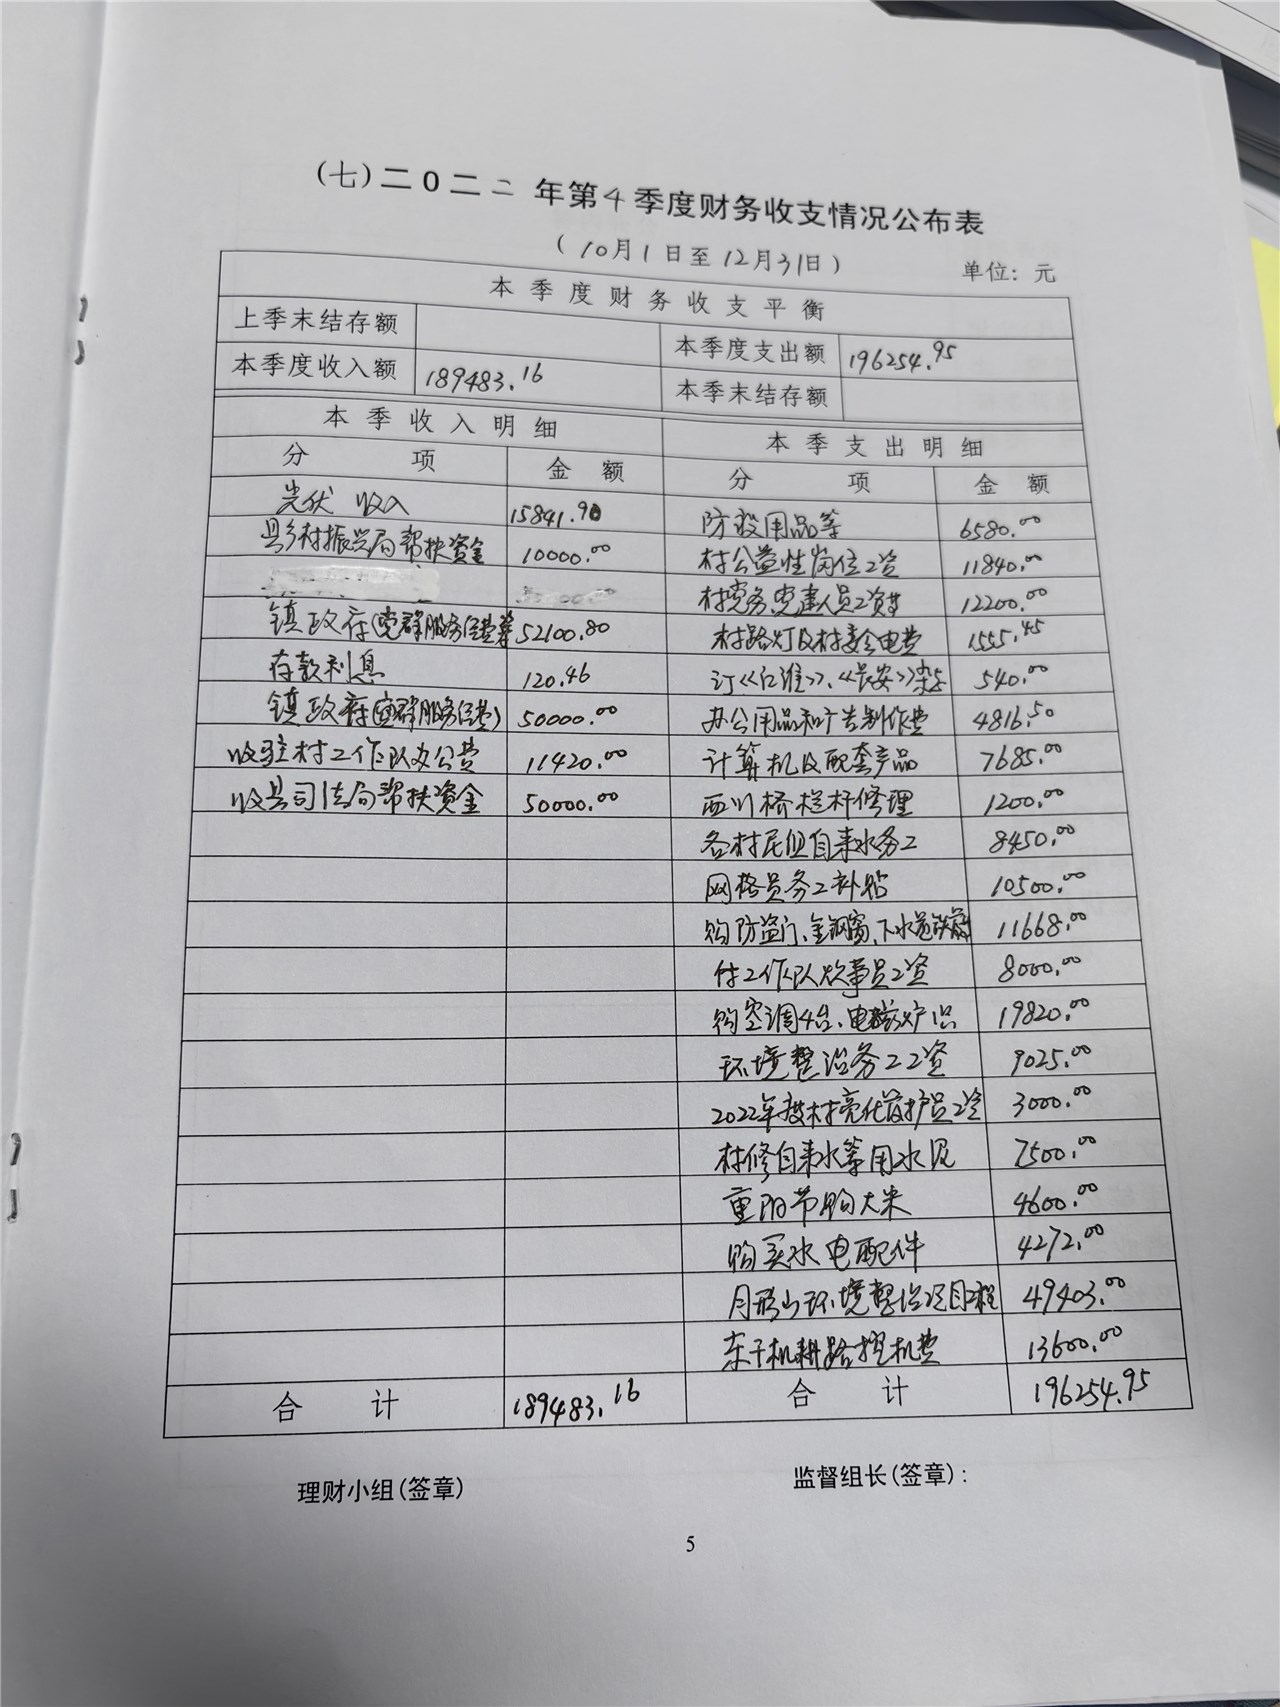 (七)二0二二 年第4季度财务收支情况公布表
(10月1日至12月31日)
单位：元
本季度财务收支平衡
上季末结存额
本季度支出额 196254.95
本季度收入额 189483.16
本季末结存额
本季收入明细 本季支出明细
分项 金额 分项 金额
光伏收入 15841.90 防疫用品等 6580.00
县乡村振兴局帮扶资金 10000.00 村公益性岗位工资 11840.00
村党务、党建人员工资 12200.00
镇政府(党群服务经费等 52100.80 村路灯及村委会电费 1555.45
存款利息 120.46 订《江淮》、《长安》杂志 540.00
镇政府(党群服务经费) 50000.00 办公用品和广告制作费 4816.50
收驻村工作队办公费 11420.00 计算机及配套产品 7685.00
收县司法局帮扶资金 50000.00 西川桥栏杆修理 1200.00
各村民组自来水务工 8450.00
网格员务工补贴 10500.00
购防盗门、金钢窗、下水道 11668.00
付工作队炊事员工资 8000.00
购空调4台、电磁炉 19820.00
环境整治务工工资 9025.00
2022年度村亮化管护员工资 3000.00
村修自来水等用水泥 7500.00
重阳节购大米 4600.00
购买水电配件 4272.00
月形山环境整治项目工程 49403.00
东干机耕路挖机费 13600.00
合计 189483.16 合计 196254.95
理财小组(签章) 监督组长(签章)：
5